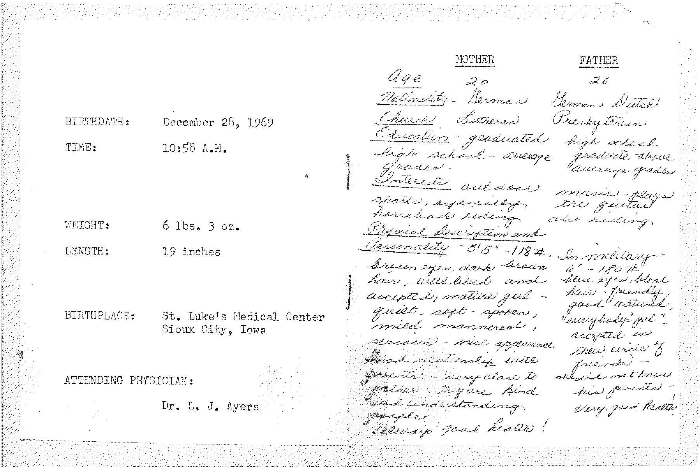 BIRTHDATE: December 28, 1969
TIME: 10:58 A.M.
WEIGHT: 6 lbs. 3 oz.
LENGTH: 19 inches
BIRTHPLACE: St. Luke's Medical Center
Sioux City, Iowa
ATTENDING PHYSICIAN:
Dr. L. J. Ayers
MOTHER FATHER
Age 20 26
Nationality - German German & Dutch
Church: Lutheran Presbyterian
Education - graduated high school
high school - average graduate above
grades. average grades
Interests outdoor music - plays
sports, especially the guitar
horseback riding. also riding.
Physical Description and
Personality - 5'5" - 118#. In military -
brown eyes, dark brown 6' - 180#
hair, well liked and blue eyes, blond
accepted, mature girl - hair - friendly,
quiet, soft-spoken, good natured,
mild mannered, "everybody's pal" -
accepted in
good relationship with their circle of
parents - very close to friends -
kind
and understanding. his parents -
people. Very good health
good health!